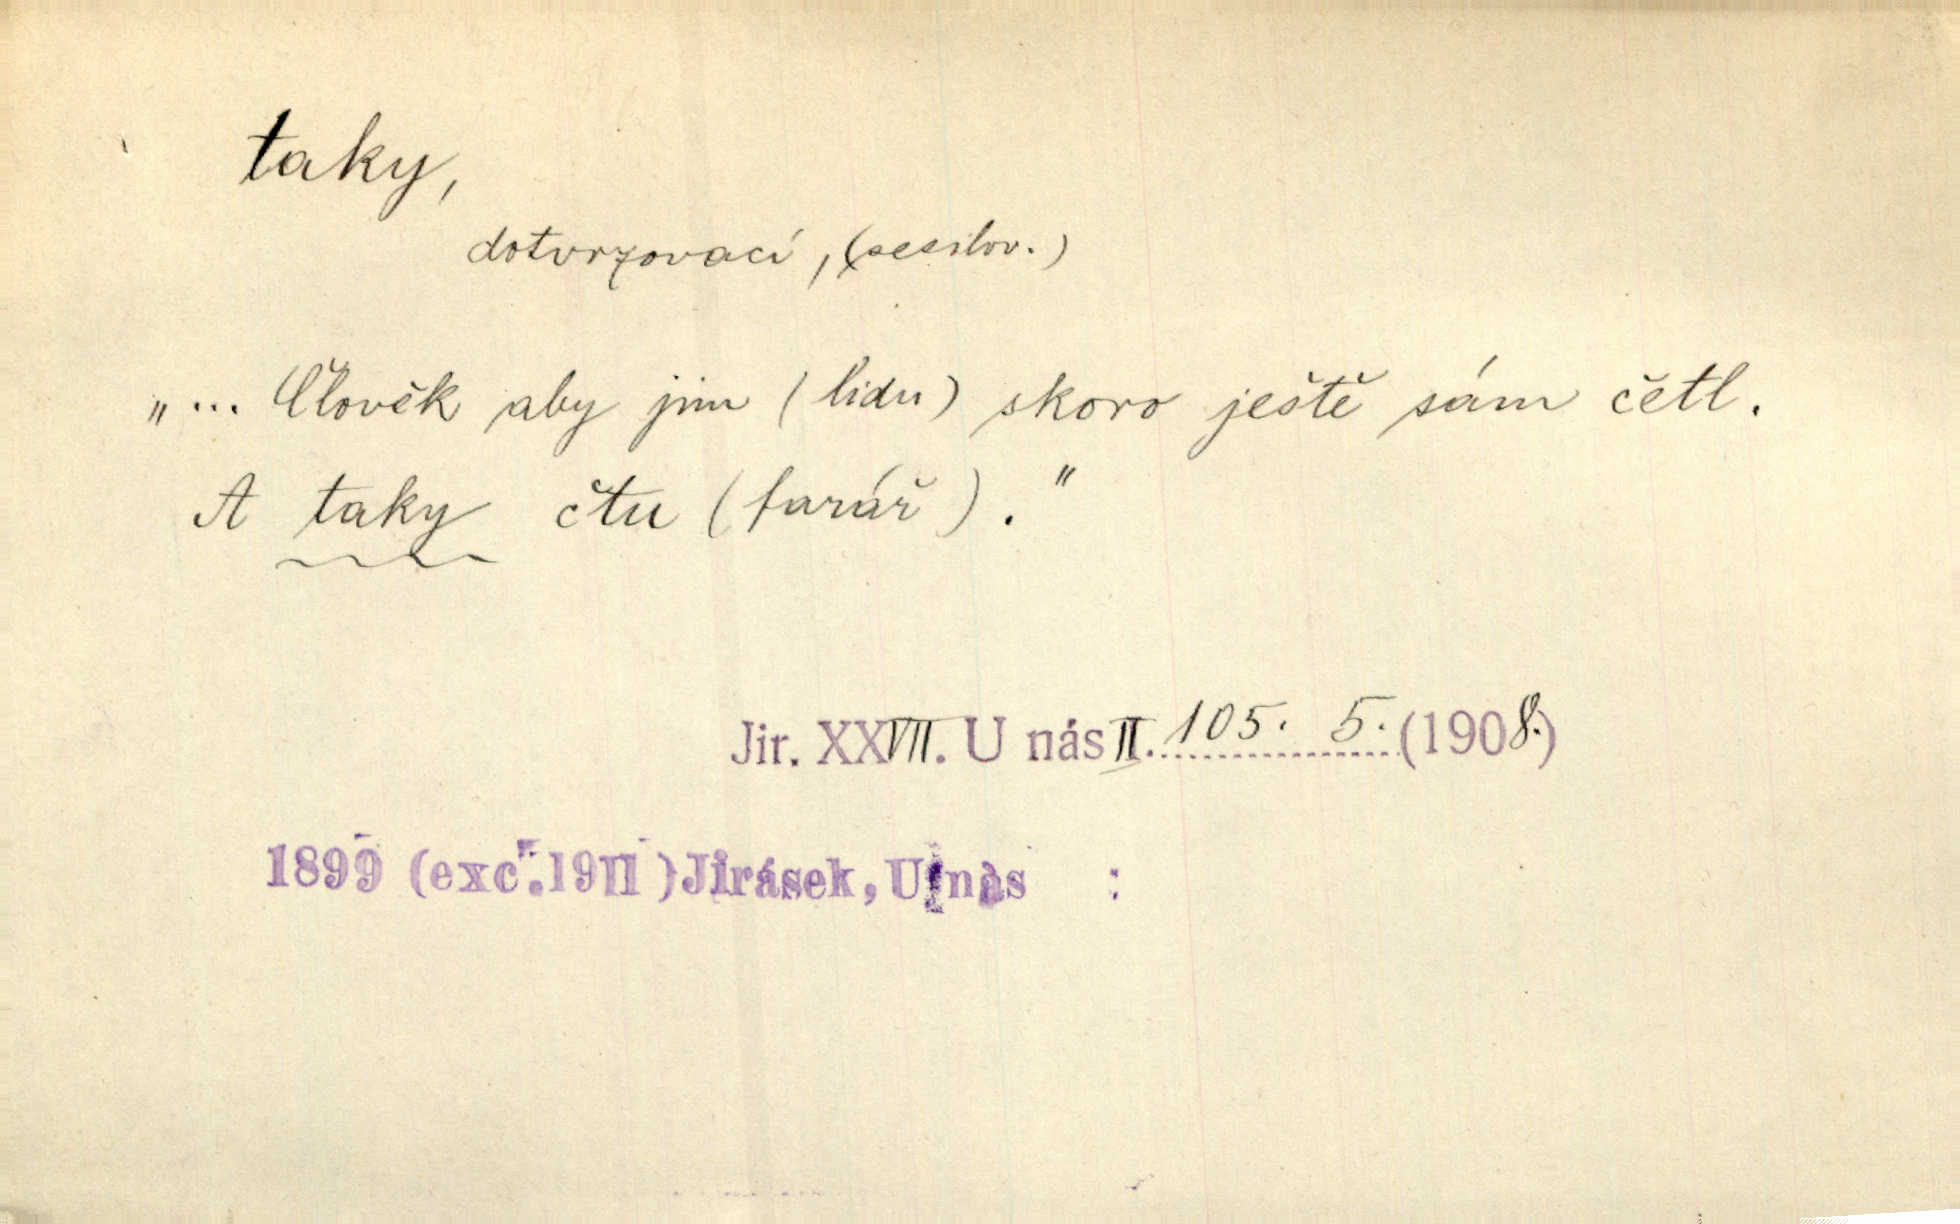 taky,
dotvrzovací, (sesilov.)
„... Člověk aby jim (lidu) skoro ještě sám četl.
A taky čtu (farář)."
Jir. XXVII. U nás II. 105. 5. (1908.)
1899 (exc. 1911) Jirásek, U nás :